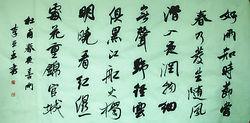 好雨知時節當
春乃發生隨風
潛入夜潤物細
無聲野徑雲
俱黑江船火獨
明曉看紅濕
處花重錦官城
杜甫春夜喜雨
李書